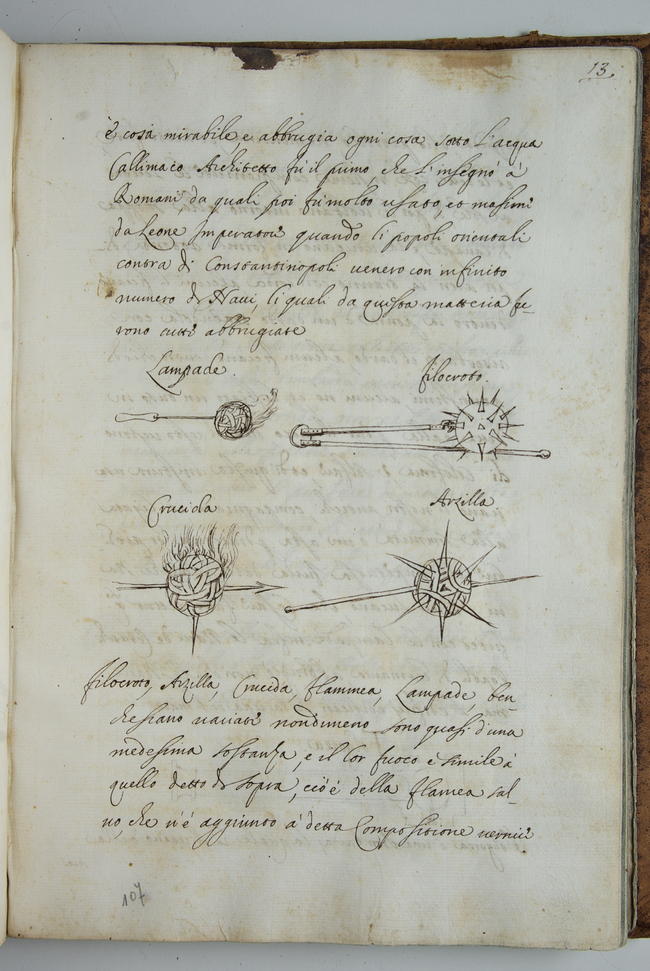 13.
è cosa mirabile, e abbrugia ogni cosa sotto l'acqua
Callimaco Architetto fù il primo che l'insegnò à
Romani, da quali poi fù molto usato, et massime
da Leone Imperatore quando li popoli orientali
contra di Constantinopoli venero con infinito
numero di Navi, li quali da questa matteria fu-
rono tutte abbrugiate
Lampade.
filocroto.
Crucida
Arzilla
filocroto, Arzilla, Crucida, flammea, Lampade, ben-
che siano variati nondimeno sono quasi d'una
medesima sostanza, e il lor fuoco è simile à
quello detto di sopra, cioè della flamea sal-
vo, che vi è aggiunto à detta Compositione vernice
107